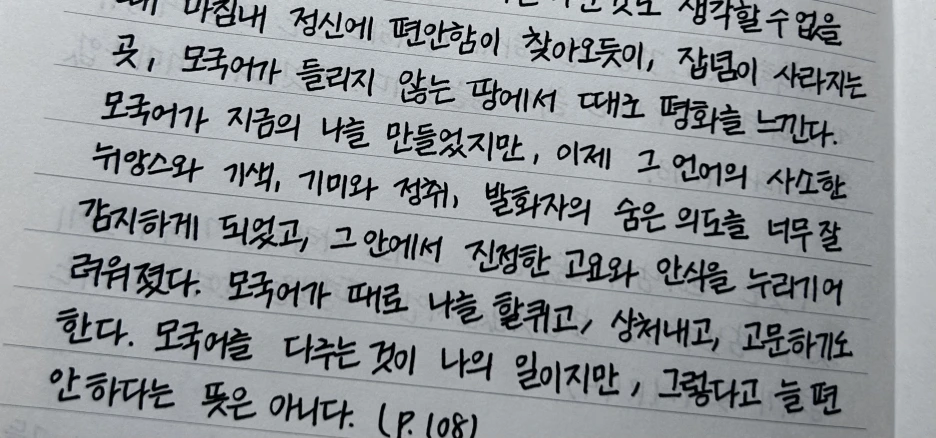 생각할 수 없을
때 마침내 정신에 편안함이 찾아오듯이, 잡념이 사라지는
곳, 모국어가 들리지 않는 땅에서 때로 평화를 느낀다.
모국어가 지금의 나를 만들었지만, 이제 그 언어의 사소한
뉘앙스와 기색, 기미와 정취, 발화자의 숨은 의도를 너무 잘
감지하게 되었고, 그 안에서 진정한 고요와 안식을 누리기 어
려워졌다. 모국어가 때로 나를 할퀴고, 상처내고, 고문하기도
한다. 모국어를 다루는 것이 나의 일이지만, 그렇다고 늘 편
안하다는 뜻은 아니다. (P.108)